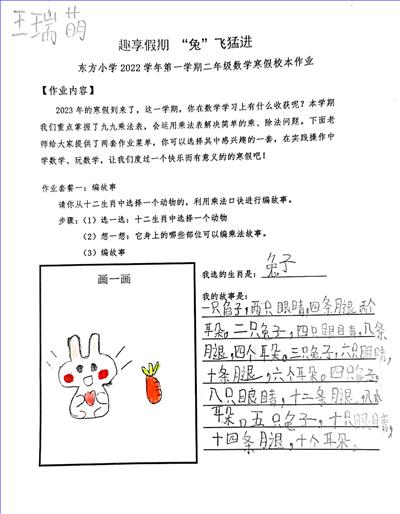 王瑞萌
趣享假期 “兔”飞猛进
东方小学2022学年第一学期二年级数学寒假校本作业
【作业内容】
2023年的寒假到来了，这一学期，你在数学学习上有什么收获呢？本学期
我们重点掌握了九九乘法表，会运用乘法表解决简单的乘、除法问题。下面老
师给大家提供了两套作业菜单，你可以选择其中感兴趣的一套，在实践操作中
学数学、玩数学，让我们度过一个快乐而有意义的的寒假吧！
作业套餐一：编故事
请你从十二生肖中选择一个动物的，利用乘法口诀进行编故事。
步骤：（1）选一选：十二生肖中选择一个动物
（2）想一想：它身上的哪些部位可以编乘法故事。
（3）编故事
画一画
我选的生肖是：兔子
我的故事是：
一只兔子，两只眼睛，四条月退两个
耳朵。二只兔子，四只眼睛，八条
月退，四个耳朵。三只兔子，六只眼睛，
十条月退，六个耳朵。四只兔子，
八只眼睛，十二条月退，八个
耳朵，五只兔子，十只眼睛，
十四条月退，十个耳朵。